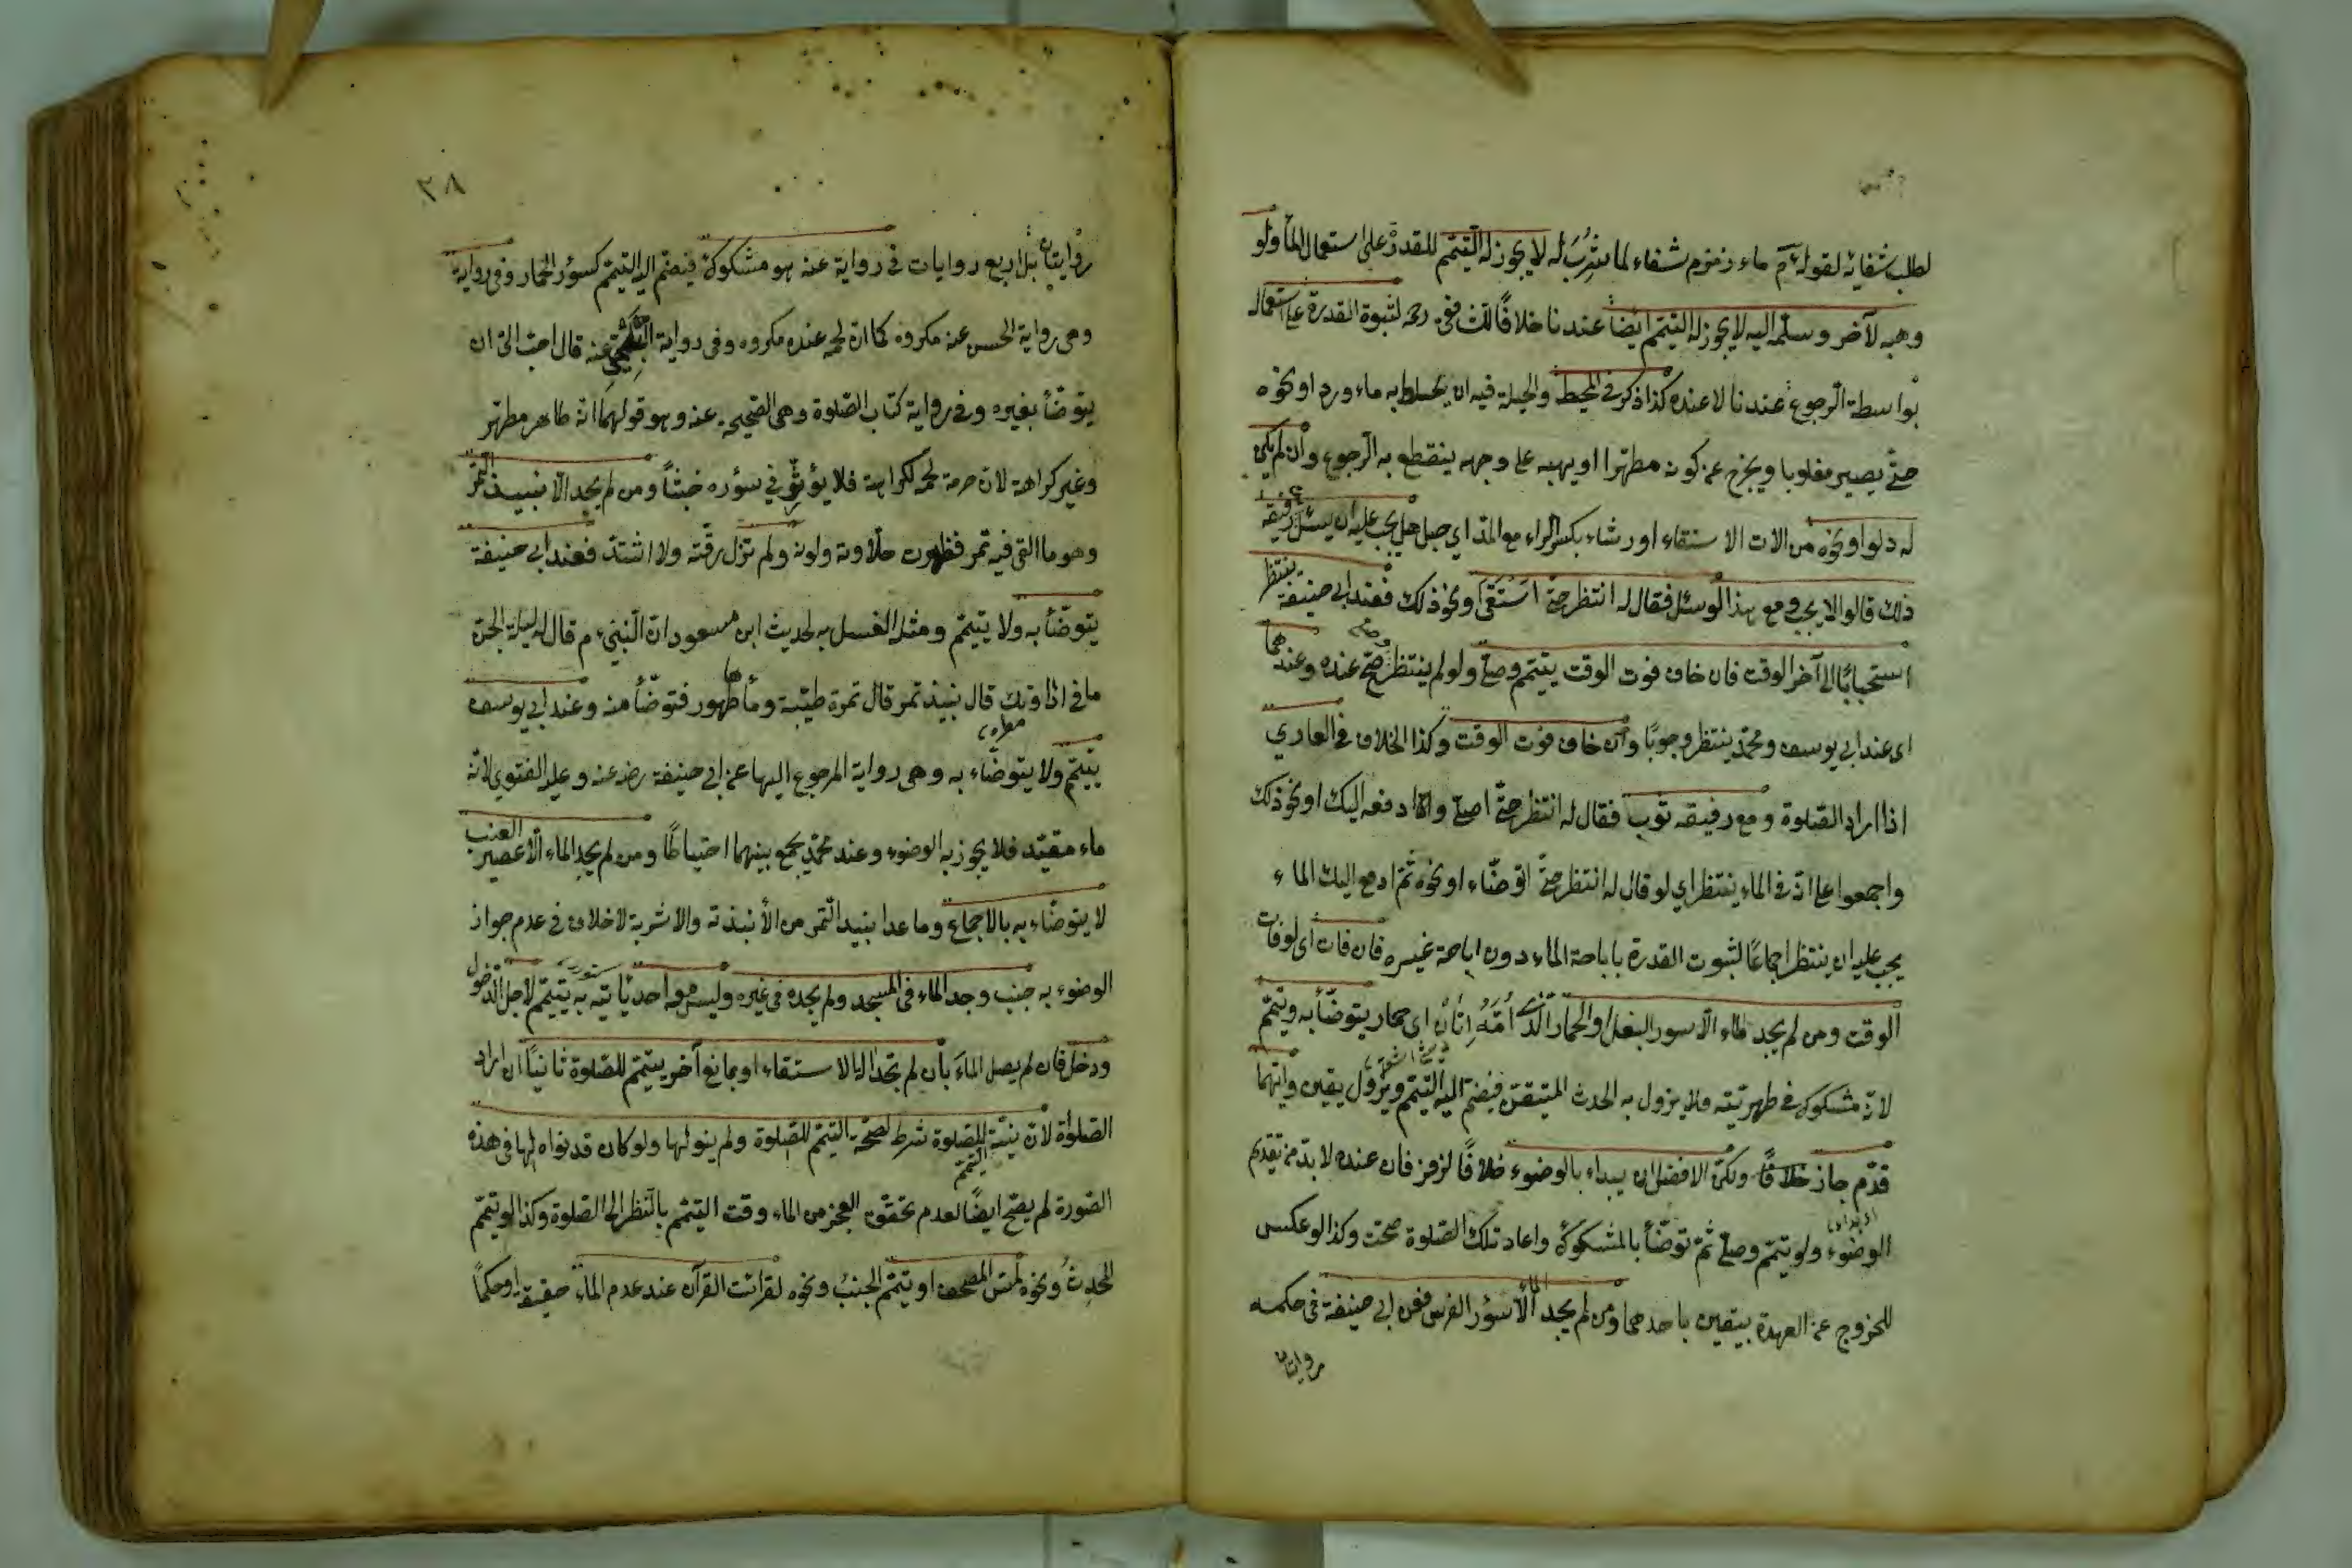 لطلب شفائه لقوله عم ماء زمزم شفاء لما شُرِبَ له لا يجوز له التيمّم للقدرة على استعمال الماء ولو
وهبه لآخر وسلّمه اليه لا يجوز له التيمّم ايضًا عندنا خلافًا للشافعى رحمه لثبوة القدرة على استعماله
بواسطة الرجوع عندنا لا عنده كذا ذكر فى المحيط والحيلة فيه ان يخلط به ماء ورد او نحوه
حتّى يصير مغلوبا ويخرج عن كونه مطهّرا او يهبه على وجه ينقطع به الرجوع وان لم يكن
له دلو او نحوه من الات الاستقاء او رشاء بكسر الراء مع المدّ اي حبل هل يجب عليه ان يسئل رفيقه
ذلك قالوا لا يجب ومع هذا لو سئل فقال له انتظر حتّى استقى ونحو ذلك فعند ابى حنيفة ينتظر
استحبابًا الى آخر الوقت فان خاف فوت الوقت يتيمّم وصلّى ولو لم ينتظر صحّ عنده وعندهما
اى عند ابى يوسف ومحمّد ينتظر وجوبًا وان خاف فوت الوقت وكذا الخلاف فى العاري
اذا اراد الصّلوة ومع رفيقه ثوب فقال له انتظر حتّى اصلّى وانا ادفعه اليك او نحو ذلك
واجمعوا على انّه فى الماء ينتظر اي لو قال له انتظر حتّى اتوضّاء او نحوه ثمّ ادفع اليك الماء
يجب عليه ان ينتظر اجماعًا لثبوت القدرة باباحة الماء دون اباحة غيره فان فات اى لو فات
الوقت ومن لم يجد الماء الّا سور البغل او الحمار الّذى اُمُّهُ اِتانٌ اى حمار يتوضّأ به ويتيمّم
لانّه مشكوك فى طهريّته فلا يزول به الحدث المتيقّن فيضمّ اليه التيمّم ويزول بيقين وايّهما
قدّم جاز خلافًا ولكن الافضل ان يبداء بالوضوء خلافًا لزفر فان عنده لا بدّ من تقديم
الوضوء ولو تيمّم وصلّى ثمّ توضّأ بالمشكوك واعاد تلك الصّلوة صحّت وكذا لو عكس
للخروج عن العهدة بيقين باحدهما ومن لم يجد الماء الّا سؤر الفرس فعن ابى حنيفة فى حكمه
روايتان
٣٨
روايتان بل اربع روايات فى رواية عنه هو مشكوك فيضمّ اليه التيمّم كسؤر الحمار وفى رواية
وهى رواية الحسن عنه مكروه كما انّ لحمه عنده مكروه وفى رواية البلخىّ عنه قال احبّ الىّ ان
يتوضّأ بغيره وفى رواية كتاب الصّلوة وهى الصّحيحة عنه وهو قولهما انّه طاهر مطهّر
وغير كراهة لانّ حرمة لحمه لكرامة فلا يؤثّر فى سؤره خبثًا ومن لم يجد الّا نبيذ التّمر
وهو ما القى فيه تمر فظهرت حلاوته ولونه ولم تزل رقّته ولا اشتدّ فعند ابى حنيفة
يتوضّأ به ولا يتيمّم ومثله الغسل به لحديث ابن مسعود انّ النّبىّ عم قال له ليلة الجنّ
ما فى اذاوتك قال نبيذ تمر قال تمرة طيّبة وماء طهور فتوضّأ منه وعند ابى يوسف
يتيمّم ولا يتوضّاء به وهى رواية المرجوع اليها عن ابى حنيفة رضه عنه وعليه الفتوى لانّه
ماء مقيّد فلا يجوز به الوضوء وعند محمّد يجمع بينهما احتياطًا ومن لم يجد الماء الّا عصير العنب
لا يتوضّاء به بالاجماع وما عدا نبيذ التّمر من الأنبذة والاشربة لا خلاف فى عدم جواز
الوضوء به جنب وجد الماء فى المسجد ولم يجده فى غيره وليس معه احد يأتيه به يتيمّم لاجل الدّخول
ودخل فان لم يصل الماء بأن لم تجد آلة الاستقاء او بمانع آخر يتيمّم للصّلوة ثانيًا ان اراد
الصّلوة لانّ نيّة الصّلوة شرط لصحّة التيمّم للصّلوة ولم ينو لها ولو كان قد نواه لها فى هذه
الصّورة لم يصحّ ايضًا لعدم تحقّق العجز من الماء وقت التيمّم بالنّظر الى الصّلوة وكذا لو تيمّم
المحدِث ونحوه لمسّ المصحف او تيمّم الجنب ونحوه لقرائت القرآن عند عدم الماء حقيقة او حكمًا